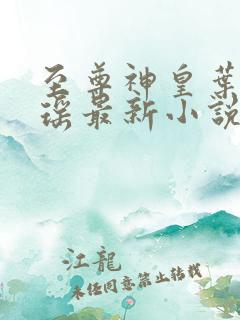 至尊神皇葉
瑶最新小説
江龍
未任同意禁止转载